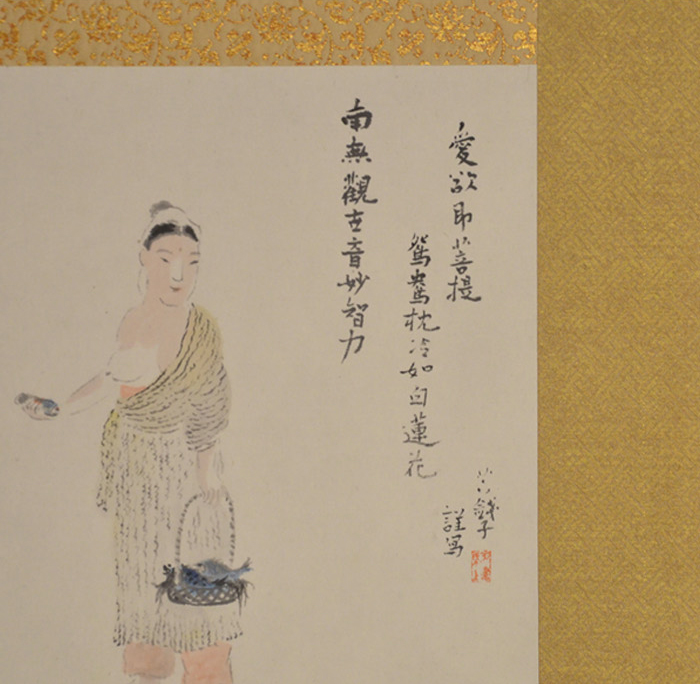 愛欲即菩提
鴛鴦枕冷如白蓮花
南無觀世音妙智力
芋銭子
謹写